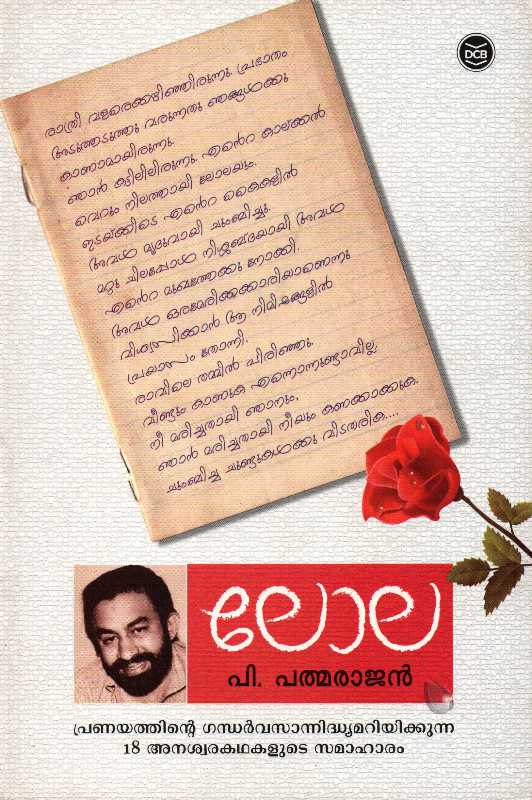 DCB
രാത്രി വളരെക്കഴിഞ്ഞിരുന്നു. പ്രഭാതം
അടുത്തടുത്തു വരുന്നതു ഞങ്ങൾക്കു
കാണാമായിരുന്നു.
ഞാൻ കട്ടിലിലിരുന്നു. എന്റെ കാല്ക്കൽ
വെറും നിലത്തായി ലോലയും.
ഇടയ്ക്കിടെ എന്റെ കൈകളിൽ
അവൾ മൃദുവായി ചുംബിച്ചു.
മറ്റു ചിലപ്പോൾ നിശ്ശബ്ദയായി അവൾ
എന്റെ മുഖത്തേക്കു നോക്കി.
അവൾ ഒരമേരിക്കക്കാരിയാണെന്നു
വിശ്വസിക്കാൻ ആ നിമിഷങ്ങളിൽ
പ്രയാസം തോന്നി.
രാവിലെ തമ്മിൽ പിരിഞ്ഞു.
വീണ്ടും കാണുക എന്നൊന്നുണ്ടാവില്ല,
നീ മരിച്ചതായി ഞാനും,
ഞാൻ മരിച്ചതായി നീയും കണക്കാക്കുക.
ചുംബിച്ച ചുണ്ടുകൾക്കു വിടതരിക....
ലോല
പി. പത്മരാജൻ
പ്രണയത്തിന്റെ ഗന്ധർവസാന്നിദ്ധ്യമറിയിക്കുന്ന
18 അനശ്വരകഥകളുടെ സമാഹാരം